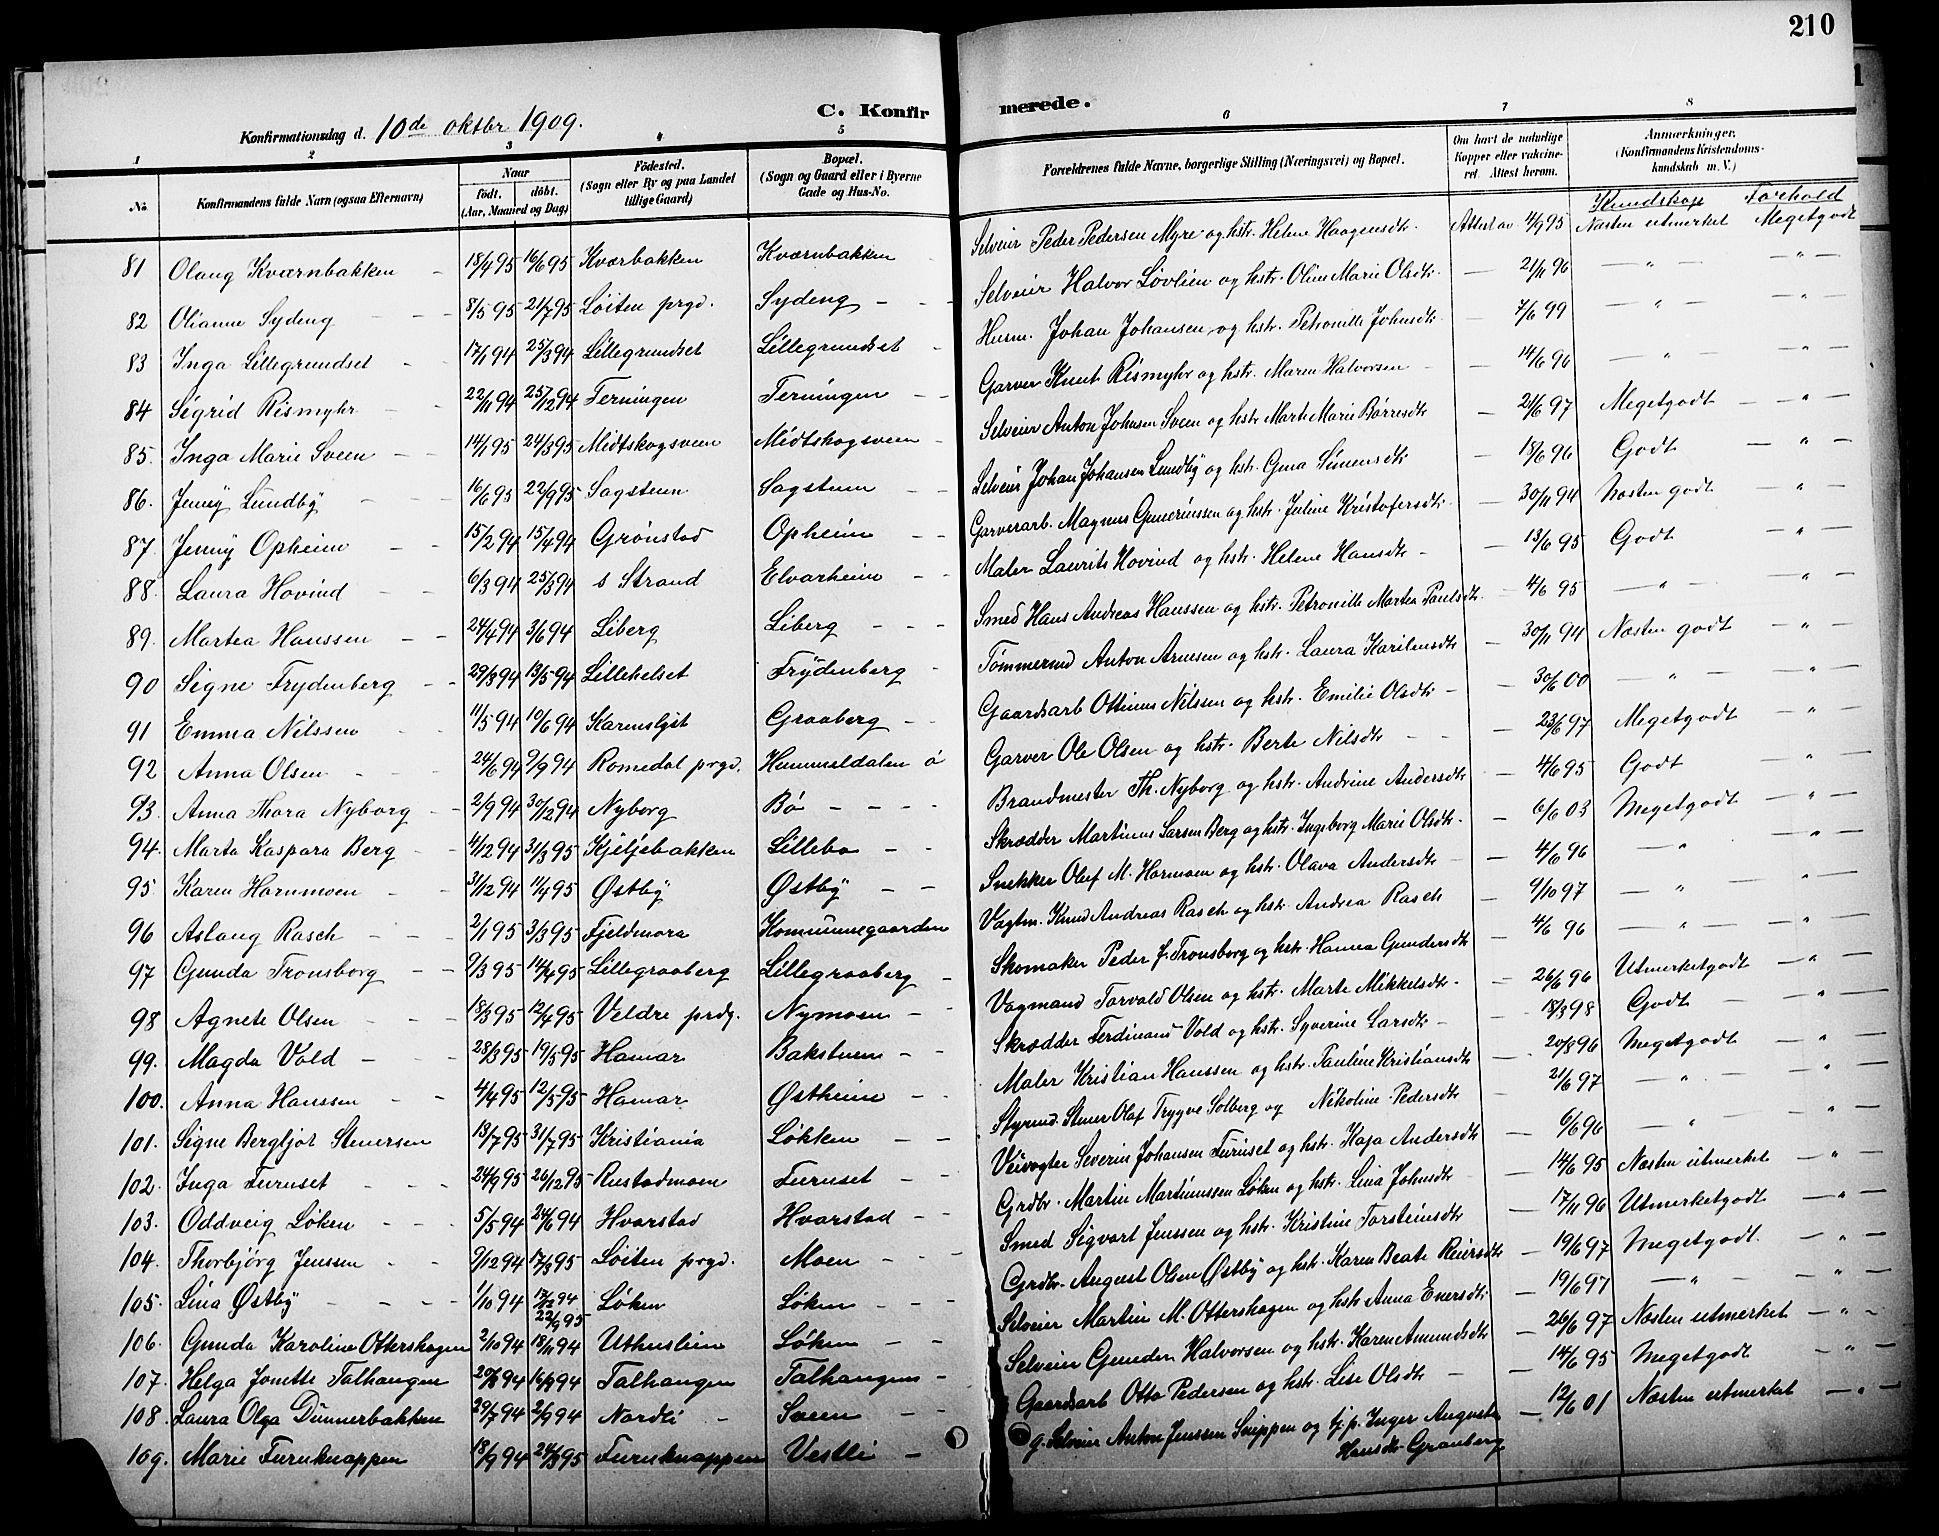 210
C. Konfirmerede.
Konfirmationsdag d. 10de oktbr 1909.
1 2 3 4 5 6 7 8
No. Konfirmandens fulde Navn (ogsaa Efternavn) Naar født. døbt. (Aar, Maaned og Dag) Fødested. (Sogn eller By og paa Landet tillige Gaard) Bopæl. (Sogn og Gaard eller i Byerne Gade og Hus-No. Forældrenes fulde Navne, borgerlige Stilling (Næringsvei) og Bopæl. Om havt de naturlige Kopper eller vakcineret. Attest herom. Anmærkninger. (Konfirmandens Kristendomskundskab m. V.)
Kundskap Forhold
81 Olaug Kværnbakken 18/4 95 16/6 95 Kværbakken Kværnbakken Selveier Peder Pedersen Myre og hstr. Helene Haagensdtr. Attest av 4/9 95 Næsten utmerket Megetgodt
82 Olianne Sydeng 8/5 95 21/7 95 Løiten prgd. Sydeng Selveier Halvor Løvlien og hstr. Oline Marie Olsdtr. — 21/11 96 — " — — " —
83 Inga Lillegrundset 17/1 94 25/3 94 Lillegrundset Lillegrundset Husm. Johan Johansen og hstr. Petronille Johnsdtr. — 7/6 99 — " — — " —
84 Sigrid Rismyhr 22/11 94 25/12 94 Terningen Terningen Garver Knut Rismyhr og hstr. Maren Halvorsen — 14/6 96 — " — — " —
85. Inga Marie Sveen 14/1 95 24/3 95 Midtskogsveen Midtskogsveen Selveier Anton Johnsen Sveen og hstr Marte Marie Børresdtr — 21/6 97 Megetgodt — " —
86. Jenny Lundby 16/6 95 22/9 95 Sagstuen Sagstuen Selveier Johan Johansen Lundby og hstr. Gina Simensdtr — 18/6 96 Godt — " —
87. Jenny Opheim 15/2 94 15/4 94 Grønstad Opheim Garverarb. Magnus Guneriussen og hstr. Juline Kristofersdtr. — 30/11 94 Næsten godt — " —
88. Laura Hovind 6/3 94 25/3 94 s Strand Elvarheim Maler Laurits Hovind og hstr. Helene Hansdtr — 13/6 95 Godt — " —
89. Martea Hanssen 24/4 94 3/6 94 Liberg Liberg Smed Hans Andreas Hanssen og hstr. Petronille Martea Paulsdtr. — 4/6 95 — " — — " —
90 Signe Frydenberg 29/3 94 13/5 94 Lillehelset Frydenberg Tømmermd Anton Arnesen og hstr. Laura Karilusdtr — 30/11 94 Næsten godt — " —
91 Emma Nilssen 11/5 94 10/6 94 Karenslyst Graaberg Gaardsarb Ottinus Nilssen og hstr. Emilie Olsdtr. — 30/6 00 — " — — " —
92 Anna Olsen 24/6 94 9/9 94 Romedal prgd. Hummeldalen ø Garver Ole Olsen og hstr. Berte Nilsdtr — 23/6 97 Megetgodt — " —
93. Anna Thora Nyborg 2/9 94 30/12 94 Nyborg Bø Brandmester Th. Nyborg og hstr. Andrine Andersdtr — 4/6 95 Godt — " —
94. Marta Kaspara Berg 4/12 94 31/3 95 Kjeljebakken Lillebo Skrædder Martinus Larsen Berg og hstr. Ingeborg Marie Olsdtr. — 6/6 03 Megetgodt — " —
95 Karen Hornmoen 31/12 94 11/4 95 Østby Østby Snekker Olef M. Hornmoen og hstr. Olava Andersdtr — 4/6 96 — " — — " —
96 Aslaug Rasch 2/1 95 3/3 95 Fjeldmora Kommunegaarden Vagtm. Knud Andreas Rasch og hstr. Andrea Rasch — 9/10 97 — " — — " —
97 Gunda Tronsborg 9/3 95 14/4 95 Lillegraaberg Lillegraaberg Skomaker Peder J. Tronsborg og hstr. Hanna Gundersdtr — 4/6 96 — " — — " —
98 Agnete Olsen 18/3 95 12/4 95 Veldre prdg. Nymoen Vagmand Torvald Olsen og hstr. Marte Mikkelsdtr. — 26/6 96 Utmerketgodt — " —
99. Magda Vold 28/3 95 19/5 95 Hamar Bakstuen Skrædder Ferdinand Vold og hstr. Syverine Larsdtr — 18/3 98 Godt — " —
100. Anna Hanssen 4/4 95 12/5 95 Hamar Østheim Maler Kristian Hanssen og hstr. Pauline Kristiansdtr — 20/8 96 Megetgodt — " —
101. Signe Bergljot Stenersen 13/7 95 31/7 95 Kristiania Løkken Styrmd. Stener Olaf Trygve Solberg og Nikoline Pedersdtr — 21/6 97 — " — — " —
102. Inga Furuset 24/9 95 26/12 95 Rustadmoen Furuset Veivogter Severin Johansen Furuset og hstr. Kaja Andersdtr — 6/6 96 — " — — " —
103. Oddveig Løken 5/5 94 24/6 94 Hvarstad Hvarstad Grdbr. Martin Martinussen Løken og hstr. Lina Johnsdtr — 14/6 95 Næsten utmerket — " —
104. Thorbjørg Jenssen 9/12 94 17/3 95 Løiten prgd. Moen Smed Sigvart Jenssen og hstr. Kristine Torsteinsdtr — 17/11 96 Utmerketgodt — " —
105. Lina Østby 1/10 94 17/12 94 22/9 95 Løken Løken Grdbr. August Olsen Østby og hstr. Karen Beate Reiersdtr — 19/6 97 Megetgodt. — " —
106. Gunda Karoline Ottershagen 2/10 94 18/11 94 Uthuslien Løken Selveier Martin M. Ottershagen og hstr Anna Enersdtr — 19/6 97 — " — — " —
107. Helga Jonette Talhaugen 20/8 94 16/9 94 Talhaugen Talhaugen Selveier Gunder Halvorsen og hstr. Karen Amundsdtr — 26/6 97 Næsten utmerket — " —
108. Laura Olga Dunnerbakken 29/7 94 2/9 94 Nordli Sveen Gaardsarb Otto Pedersen og hstr. Lise Olsdtr — 14/6 95 Megetgodt — " —
109. Marie Furuknappen 18/9 94 24/3 95 Furuknappen Vestli g. Selveier Anton Jenssen Snippen og tj.p. Inger Auguste Hansdtr Granberg — 12/6 01 Næsten utmerket — " —